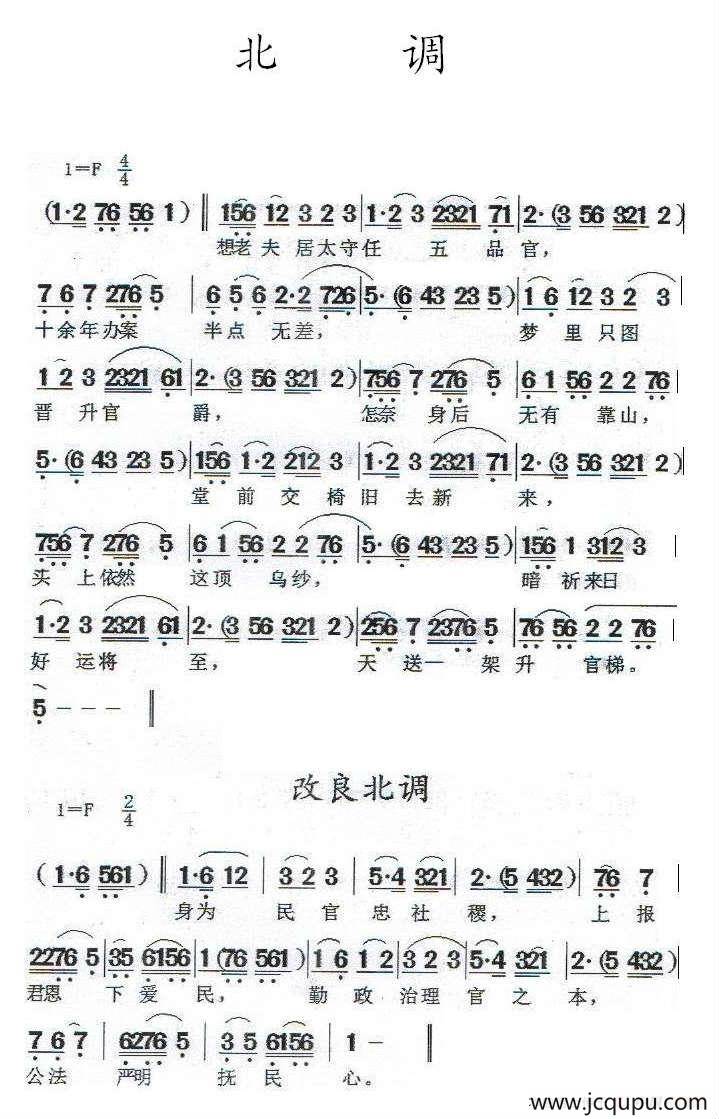 北 调
1=F 4/4
(1·2 76 56 1) ‖ 156 12 3 2 3 | 1·2 3 2321 71 | 2·(3 56 321 2) |
想老 夫 居太守任 五 品 官,
7 6 7 276 5 | 6 5 6 2·2 726 | 5·(6 43 23 5) | 1 6 12 3 2 3 |
十余年办案 半点 无差, 梦 里 只图
1 2 3 2321 61 | 2·(3 56 321 2) | 756 7 276 5 | 6 1 56 2 2 76 |
晋 升官 爵, 怎奈 身后 无有 靠山,
5·(6 43 23 5) | 156 1·2 212 3 | 1·2 3 2321 71 | 2·(3 56 321 2) |
堂 前 交 椅旧 去新 来,
756 7 276 5 | 6 1 56 2 2 76 | 5·(6 43 23 5) | 156 1 312 3 |
头 上依然 这顶 乌纱, 暗 祈来日
1·2 3 2321 61 | 2·(3 56 321 2) | 256 7 2376 5 | 76 56 2 2 76 |
好 运将 至, 天 送一 架升 官梯。
5 - - - ‖
改良北调
1=F 2/4
(1·6 561) ‖ 1·6 12 | 3 2 3 | 5·4 321 | 2·(5 432) | 76 7 |
身为 民 官 忠 社 稷, 上 报
2276 5 | 35 6156 | 1 (76 561) | 1 6 1 2 | 3 2 3 | 5·4 321 | 2·(5 432) |
君恩 下 爱 民, 勤 政 治理 官 之 本,
7 6 7 | 6276 5 | 3 5 6156 | 1 - ‖
公法 严明 抚 民 心。
www.jcqupu.com